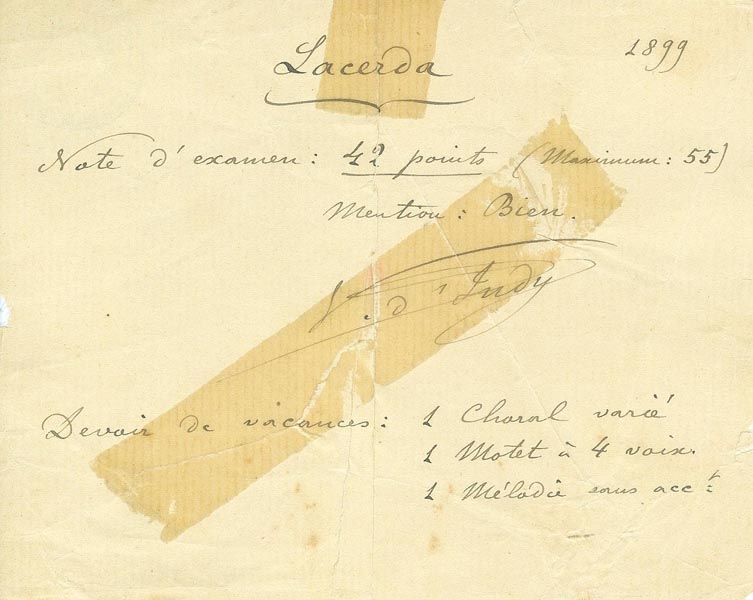 Lacerda
1899
Note d'examen : 42 points (Maximum : 55)
Mention : Bien.
V. d'Indy
Devoir de vacances : 1 Choral varié
1 Motet à 4 voix.
1 Mélodie sans acc.t